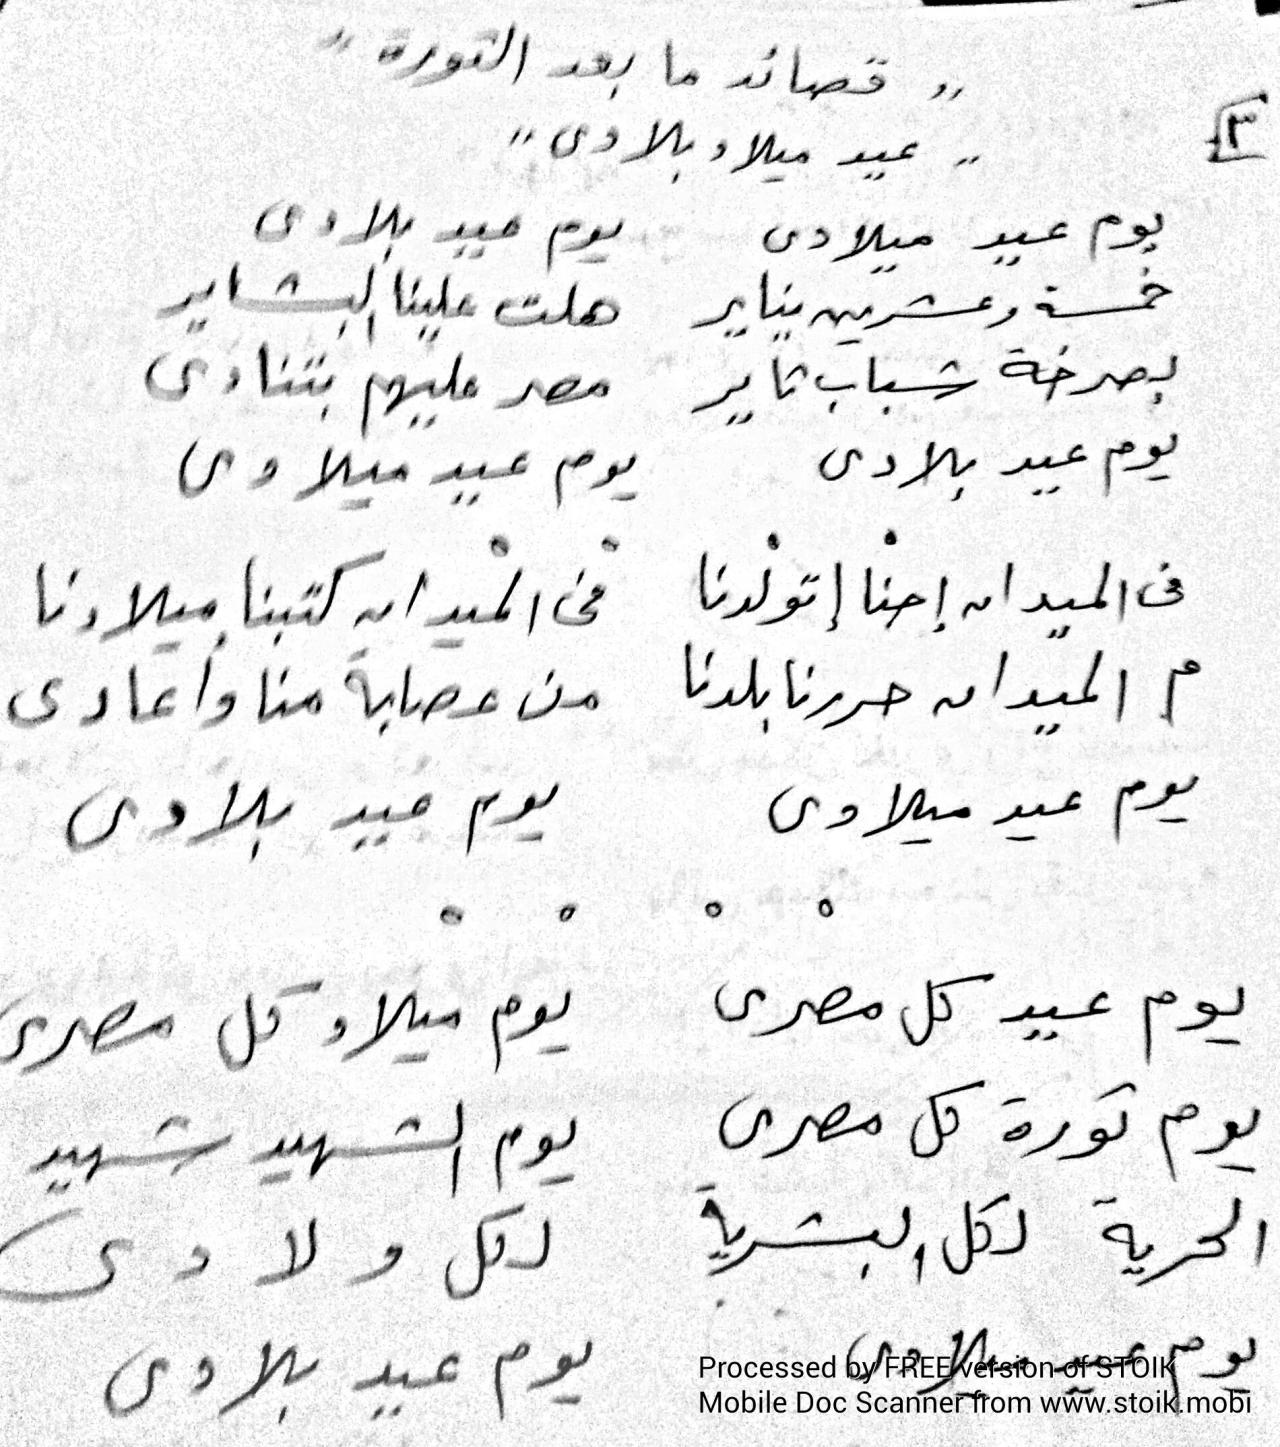 " قصائد ما بعد الثورة "
٣
" عيد ميلاد بلادى "
يوم عيد ميلادى يوم عيد بلادى
خمسة وعشرين يناير هلت علينا البشاير
بصرخة شباب ثاير مصر عليهم بتنادى
يوم عيد بلادى يوم عيد ميلادى
فى الميدان إحنا إتولدنا فى الميدان كتبنا ميلادنا
م الميدان حررنا بلدنا من عصابة منا وأعادى
يوم عيد ميلادى يوم عيد بلادى
يوم عيد كل مصرى يوم ميلاد كل مصرى
يوم ثورة كل مصرى يوم الشهيد شهيد
الحرية لكل البشرية لكل ولادى
يوم عيد ميلادى يوم عيد بلادى
Processed by FREE version of STOIK
Mobile Doc Scanner from www.stoik.mobi